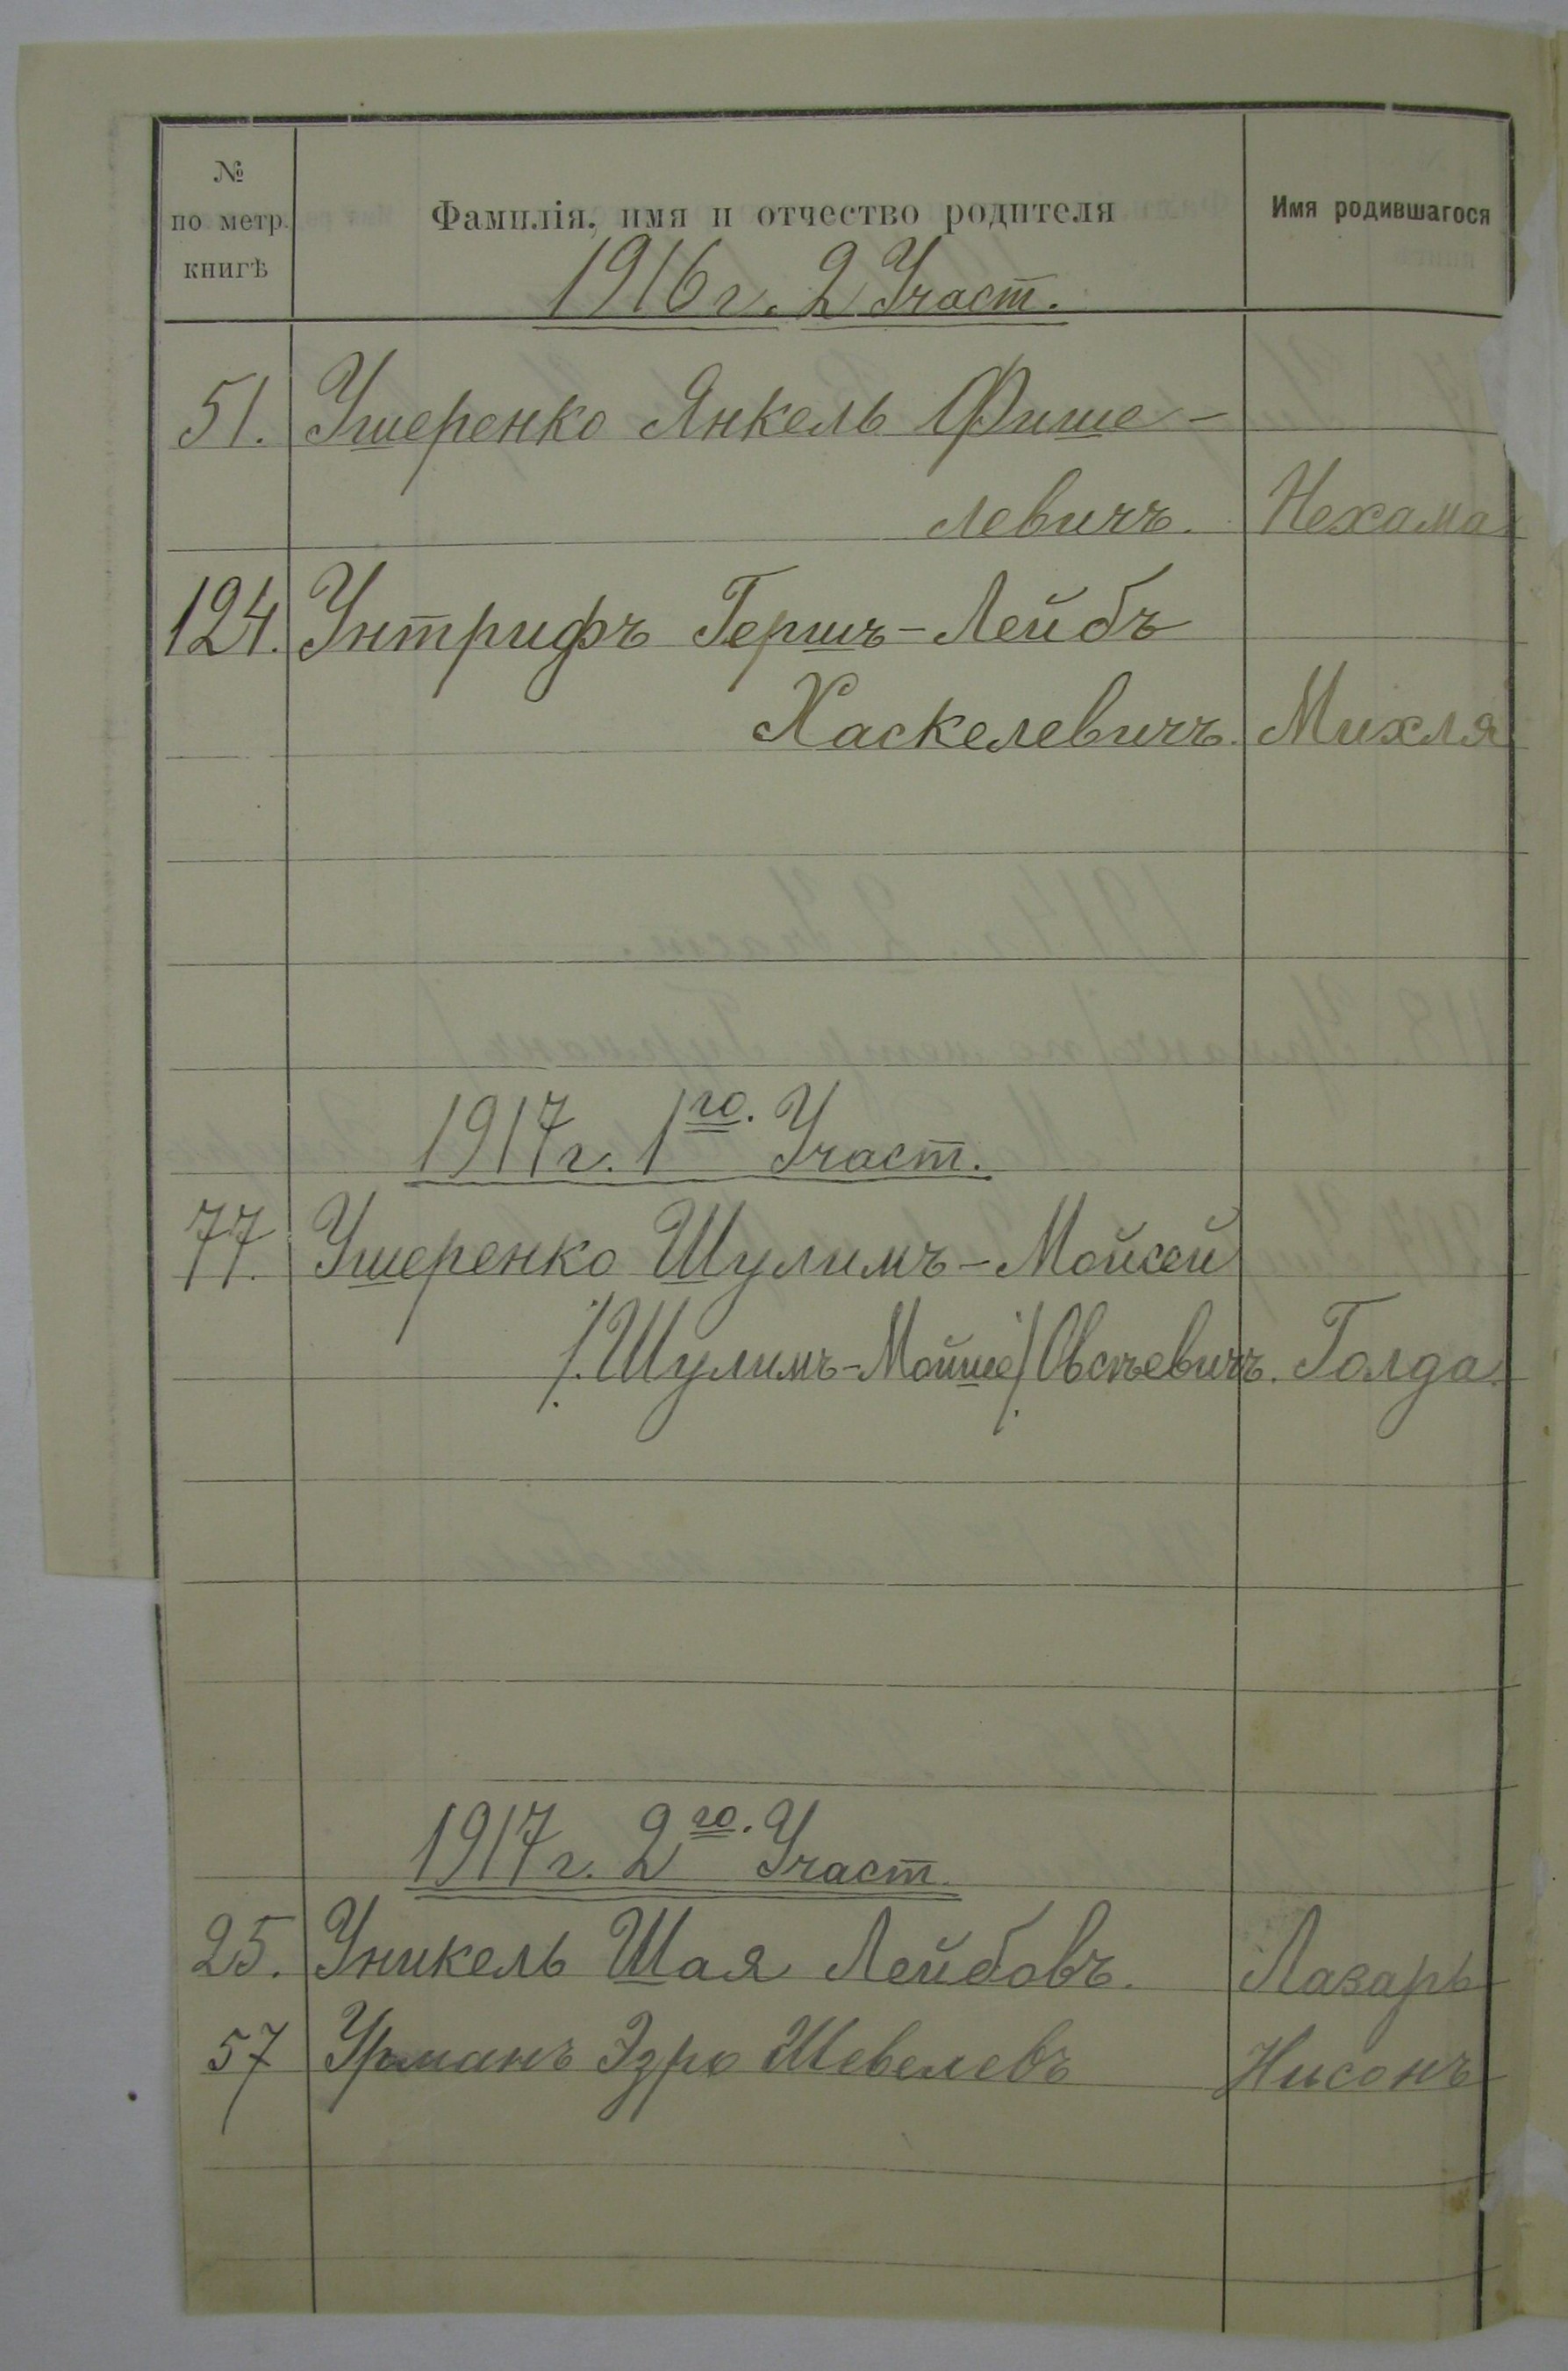 № по метр. книгѣ | Фамилія, имя и отчество родителя | Имя родившагося
1916 г. 2 Участ.
51. Ушеренко Янкель Фише-
левичъ. Нехама
124. Унтрифъ Гершъ-Лейбъ
Хаскелевичъ. Михля
1917 г. 1го. Участ.
77. Ушеренко Шулимъ-Мойсей
/:Шулимъ-Мойше:/ Овсѣевичъ. Голда
1917 г. 2го. Участ.
25. Уникель Шая Лейбовъ. Лазарь
57 Урманъ Эзро Шевелевъ Нисонъ